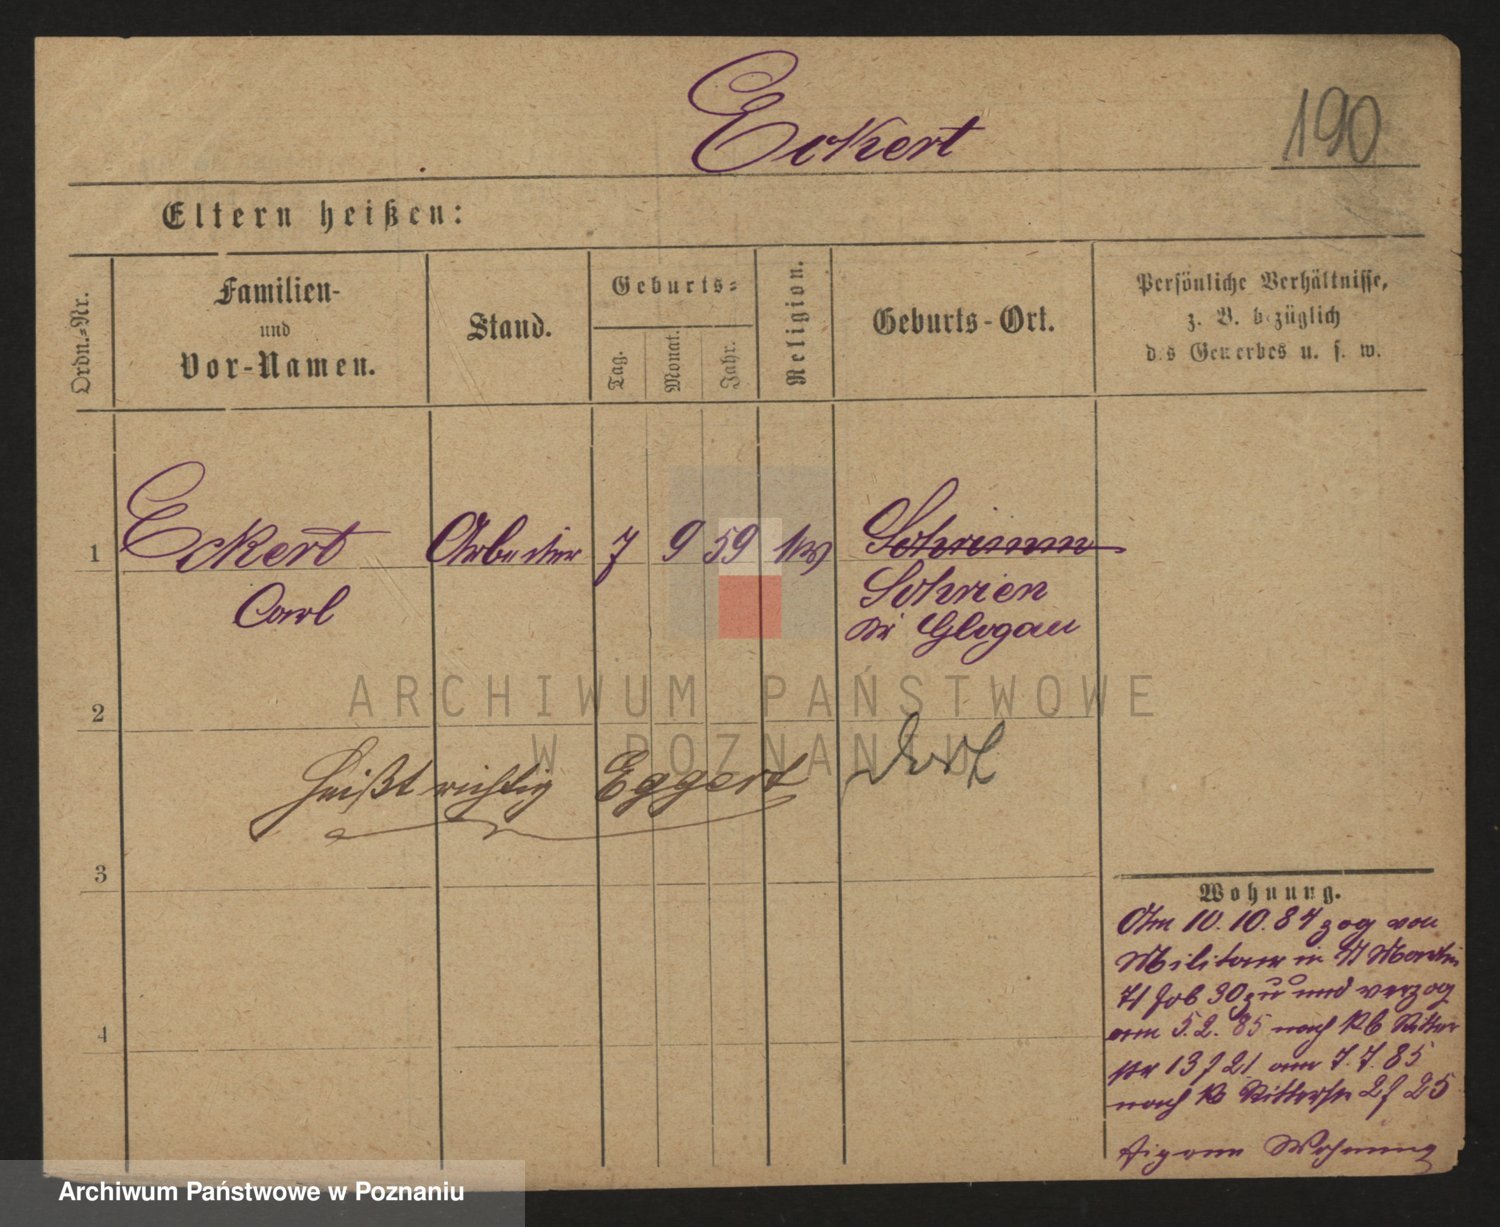 Eckert
190
Eltern heißen:
Ordn.-Nr.
Familien-
und
Vor-Namen.
Stand.
Geburts-
Tag.
Monat.
Jahr.
Religion.
Geburts-Ort.
Persönliche Verhältnisse,
z. B. bezüglich
des Gewerbes u. s. w.
1 Eckert Arbeiter 7 9 59 Schrimm
Carl Schrien
Glogau
ARCHIWUM PAŃSTWOWE
W POZNANIU
2
heißt richtig Eggert
3
Wohnung.
Am 10.10.84 zog von
Militair in St Martin
71 30 zu und verzog
am 5.2.85 nach Ritter
str 13 21 am 7.7.85
nach Ritterstr 2 25
eigene Wohnung
4
Archiwum Państwowe w Poznaniu